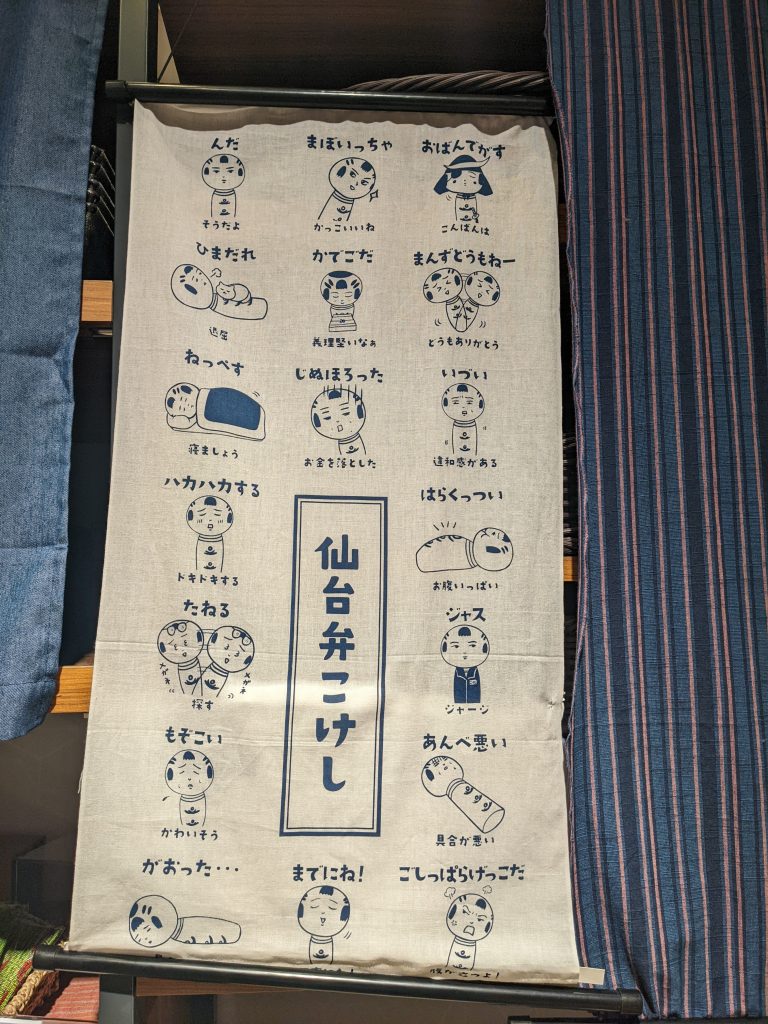 おばんでがす
こんばんは
まんずどうもねー
どうもありがとう
いづい
違和感がある
はらくっつい
お腹いっぱい
ジャス
ジャージ
あんべ悪い
具合が悪い
ごしっぱらげっこだ
腹が立つよ!
まぼいっちゃ
かっこいいね
かでごだ
義理堅いなぁ
じぬほろった
お金を落とした
仙台弁こけし
までにね!
んだ
そうだよ
ひまだれ
退屈
ねっぺす
寝ましょう
ハカハカする
ドキドキする
たねる
メガネ
メガネ
探す
もぞこい
かわいそう
がおった・・・